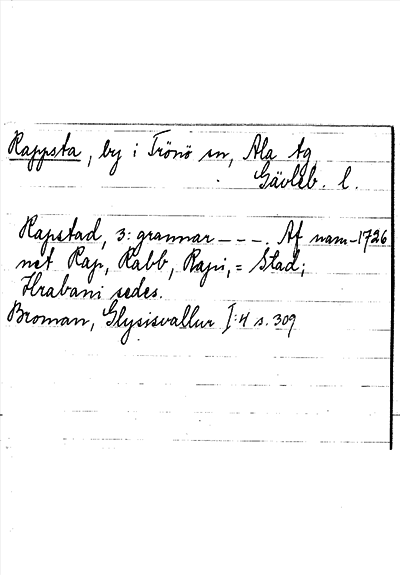 Rappsta, by i Trönö sn, Ala tg
Gävleb. l.
Rapstad, 3: grannar - - - . Af nam- 1726
net Rap, Rabb, Rapi, = Stad;
Hrabani sedes.
Broman, Glysisvallur I:4 s. 309